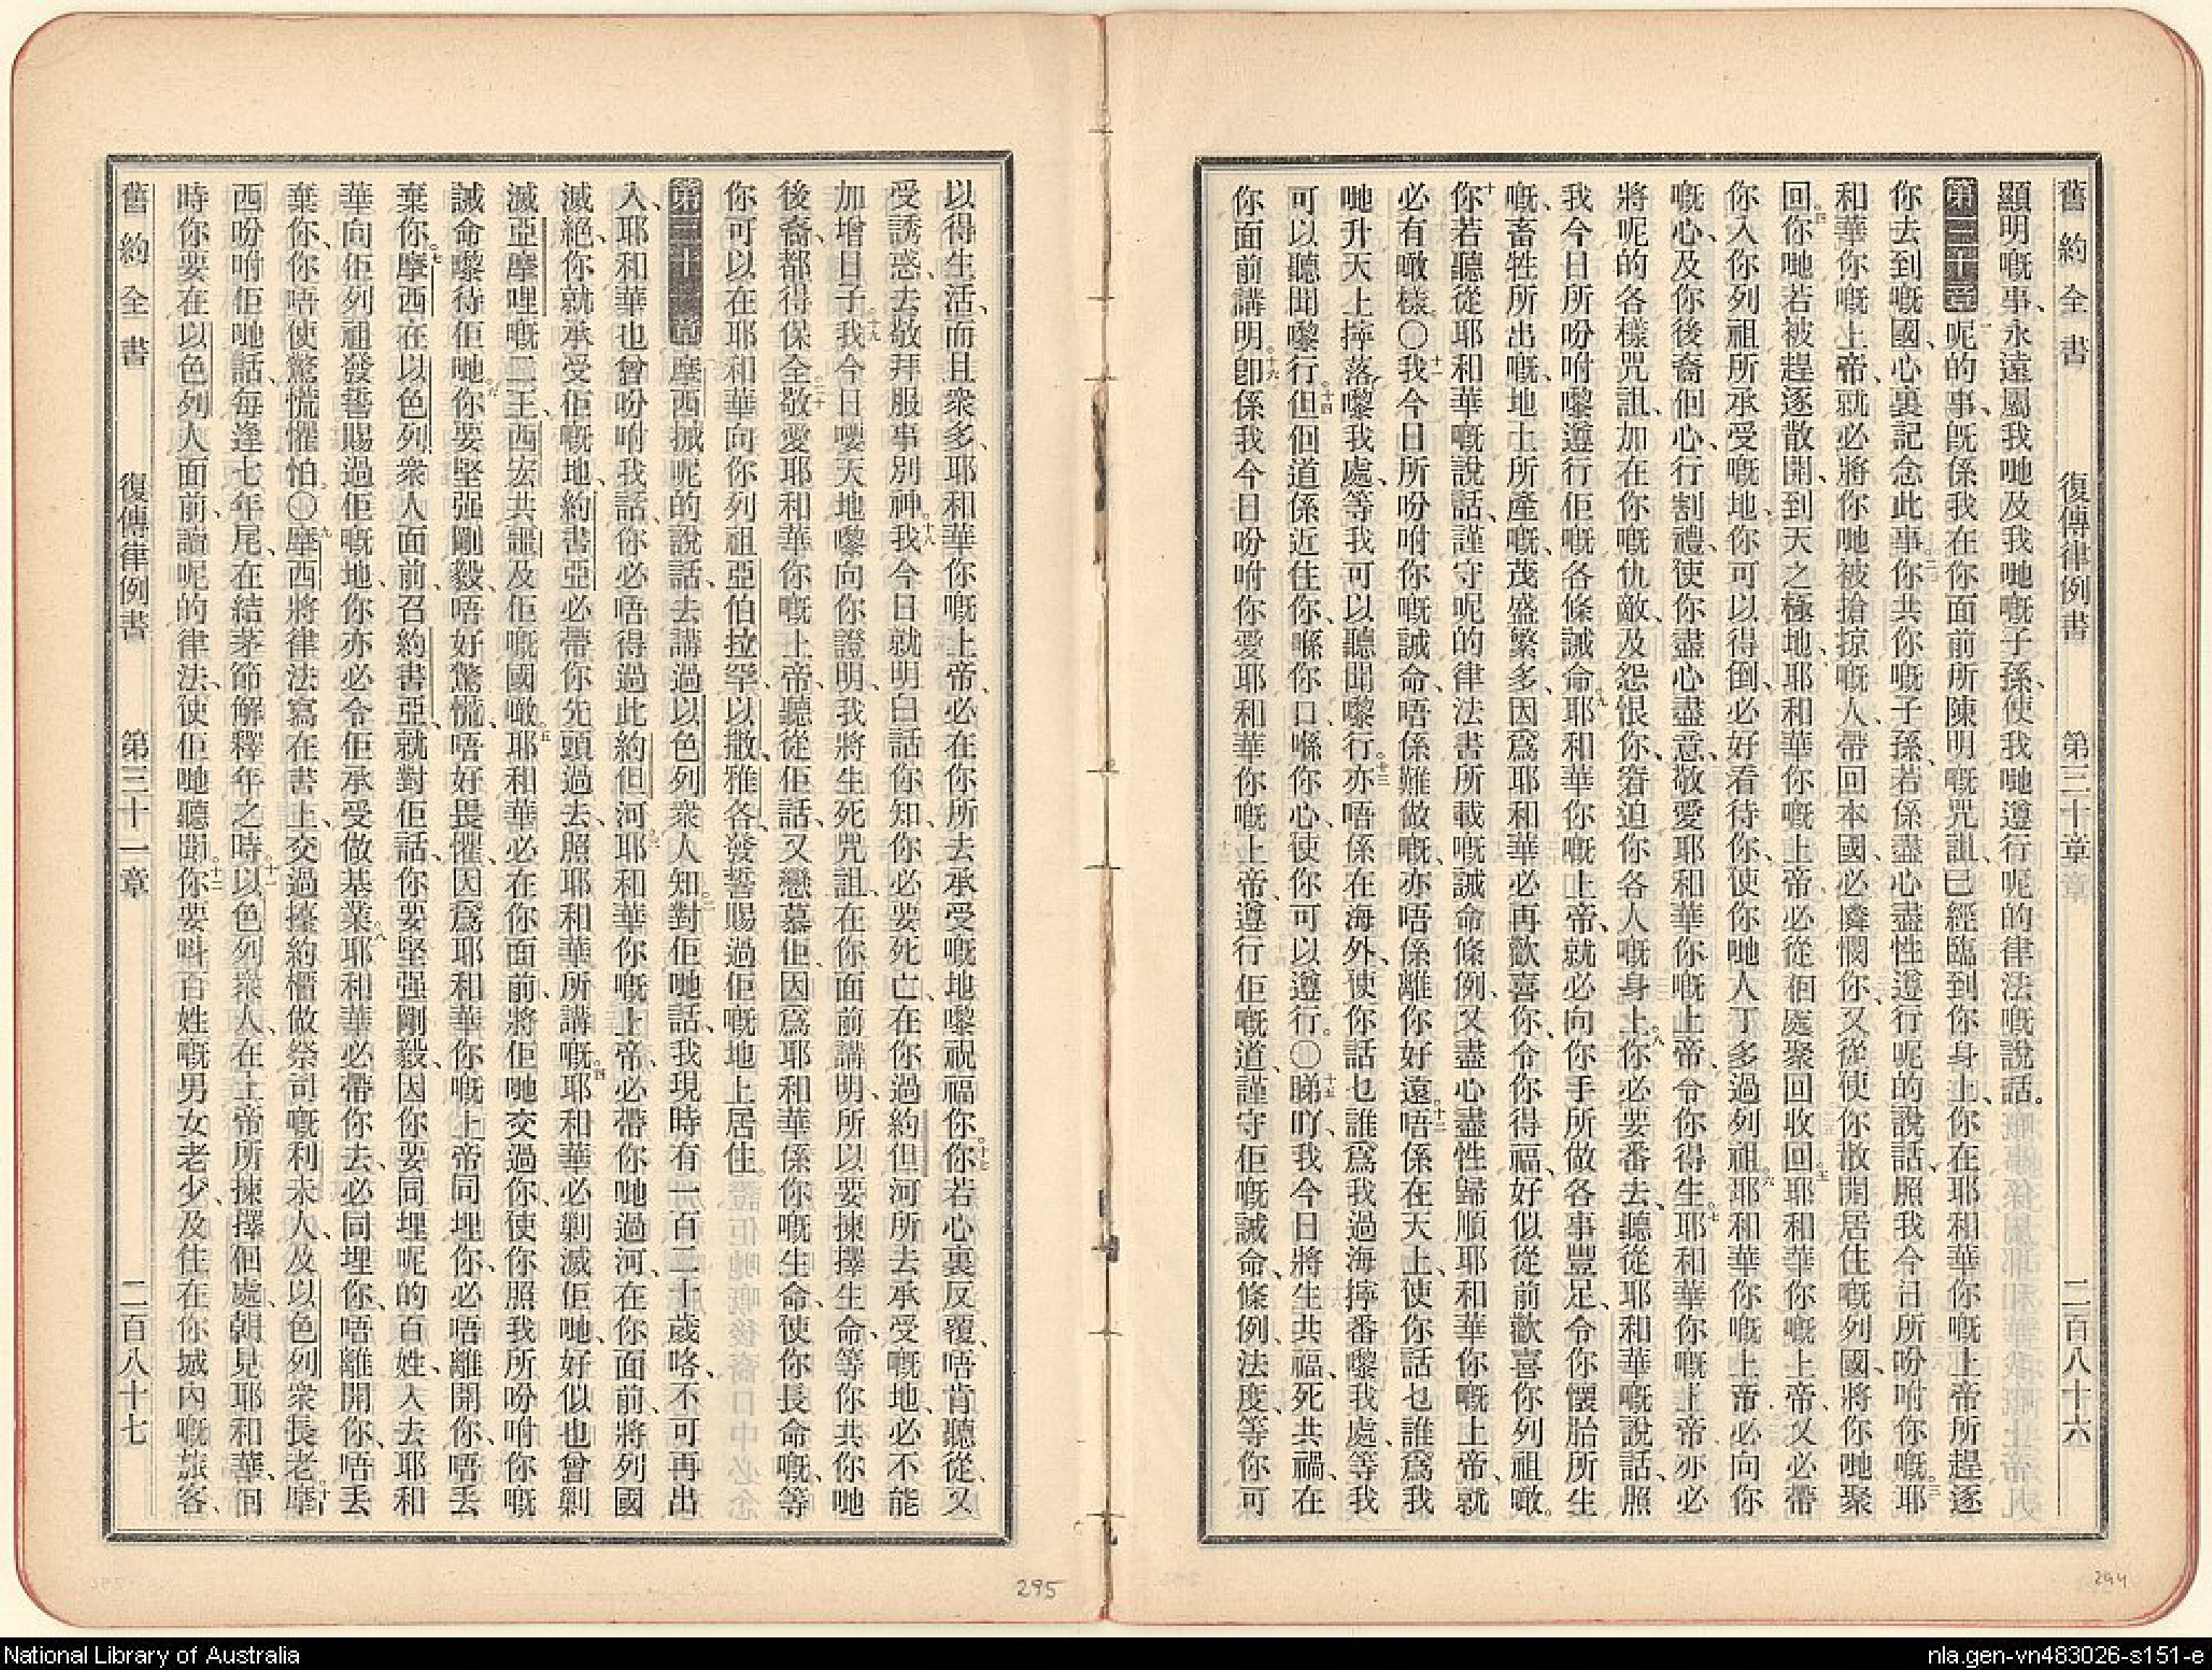 舊約全書 復傳律例書 第三十章 二百八十六
顯明嘅事、永遠屬我哋及我哋嘅子孫、使我哋遵行呢的律法嘅說話。
第三十章 呢的事、旣係我在你面前所陳明嘅咒詛、已經臨到你身上、你在耶和華你嘅上帝所趕逐
你去到嘅國、心裏記念此事、二你共你嘅子孫、若係盡心盡性遵行呢的說話、照我今日所吩咐你嘅、三耶
和華你嘅上帝、就必將你哋被搶掠嘅人、帶回本國、必憐憫你、又從使你散開居住嘅列國、將你哋聚
回。四你哋若被趕逐散開、到天之極地、耶和華你嘅上帝必從個處聚回收回。五耶和華你嘅上帝、又必帶
你入你列祖所承受嘅地、你可以得倒、必好看待你、使你哋人丁多過列祖。六耶和華你嘅上帝必向你
嘅心、及你後裔個心、行割禮、使你盡心盡意、敬愛耶和華你嘅上帝、令你得生。七耶和華你嘅上帝亦必
將呢的各樣咒詛、加在你嘅仇敵、及怨恨你、窘迫你各人嘅身上。八你必要番去、聽從耶和華嘅說話、照
我今日所吩咐嚟遵行佢嘅各條誡命。九耶和華你嘅上帝、就必向你手所做各事豐足、令你懷胎所生
嘅、畜牲所出嘅、地土所產嘅、茂盛繁多、因爲耶和華必再歡喜你、令你得福、好似從前歡喜你列祖噉。
十你若聽從耶和華嘅說話、謹守呢的律法書所載嘅誡命條例、又盡心盡性歸順耶和華你嘅上帝、就
必有噉樣。〇十一我今日所吩咐你嘅誡命、唔係難做嘅、亦唔係離你好遠。十二唔係在天上、使你話乜誰爲我
哋升天上擰落嚟我處、等我可以聽聞嚟行。十三亦唔係在海外、使你話乜誰爲我過海擰番嚟我處、等我
可以聽聞嚟行。十四但個道係近住你、喺你口、喺你心、使你可以遵行。〇十五睇吖、我今日將生共福、死共禍、在
你面前講明。十六卽係我今日吩咐你愛耶和華你嘅上帝、遵行佢嘅道、謹守佢嘅誡命、條例、法度、等你可
以得生活、而且衆多、耶和華你嘅上帝、必在你所去承受嘅地嚟祝福你。十七你若心裏反覆、唔肯聽從、又
受誘惑、去敬拜服事別神。十八我今日就明白話你知、你必要死亡、在你過約但河所去承受嘅地、必不能
加增日子。十九我今日嘜天地嚟向你證明、我將生死咒詛、在你面前講明、所以要揀擇生命、等你共你哋
後裔、都得保全。二十敬愛耶和華你嘅上帝、聽從佢話、又戀慕佢、因爲耶和華係你嘅生命、使你長命嘅、等
你可以在耶和華向你列祖亞伯拉罕、以撒、雅各、發誓賜過佢嘅地上居住。
第三十一章 摩西搣呢的說話、去講過以色列衆人知。二對佢哋話、我現時有一百二十歲咯、不可再出
入、耶和華也曾吩咐我話、你必唔得過此約但河。三耶和華你嘅上帝、必帶你哋過河、在你面前、將列國
滅絕、你就承受佢嘅地、約書亞必帶你先頭過去、照耶和華所講嘅。四耶和華必剿滅佢哋、好似也曾剿
滅亞摩哩嘅二王、西宏共噩、及佢嘅國噉。五耶和華必在你面前、將佢哋交過你、使你照我所吩咐你嘅
誡命嚟待佢哋。六你要堅强剛毅、唔好驚慌、唔好畏懼、因爲耶和華你嘅上帝同埋你、必唔離開你、唔丟
棄你。七摩西在以色列衆人面前、召約書亞、就對佢話、你要堅强剛毅、因你要同埋呢的百姓、入去耶和
華向佢列祖發誓賜過佢嘅地、你亦必令佢承受做基業。八耶和華必帶你去、必同埋你、唔離開你、唔丟
棄你、你唔使驚慌懼怕。〇九摩西將律法寫在書上、交過擡約櫃做祭司嘅利未人、及以色列衆長老。十摩
西吩咐佢哋話、每逢七年尾、在結茅節解釋年之時。十一以色列衆人、在上帝所揀擇個處、朝見耶和華、個
時你要在以色列人面前、讀呢的律法、使佢哋聽聞。十二你要叫百姓嘅男女老少、及住在你城內嘅旅客、
舊約全書 復傳律例書 第三十一章 二百八十七
295
294
National Library of Australia
nla.gen-vn483026-s151-e